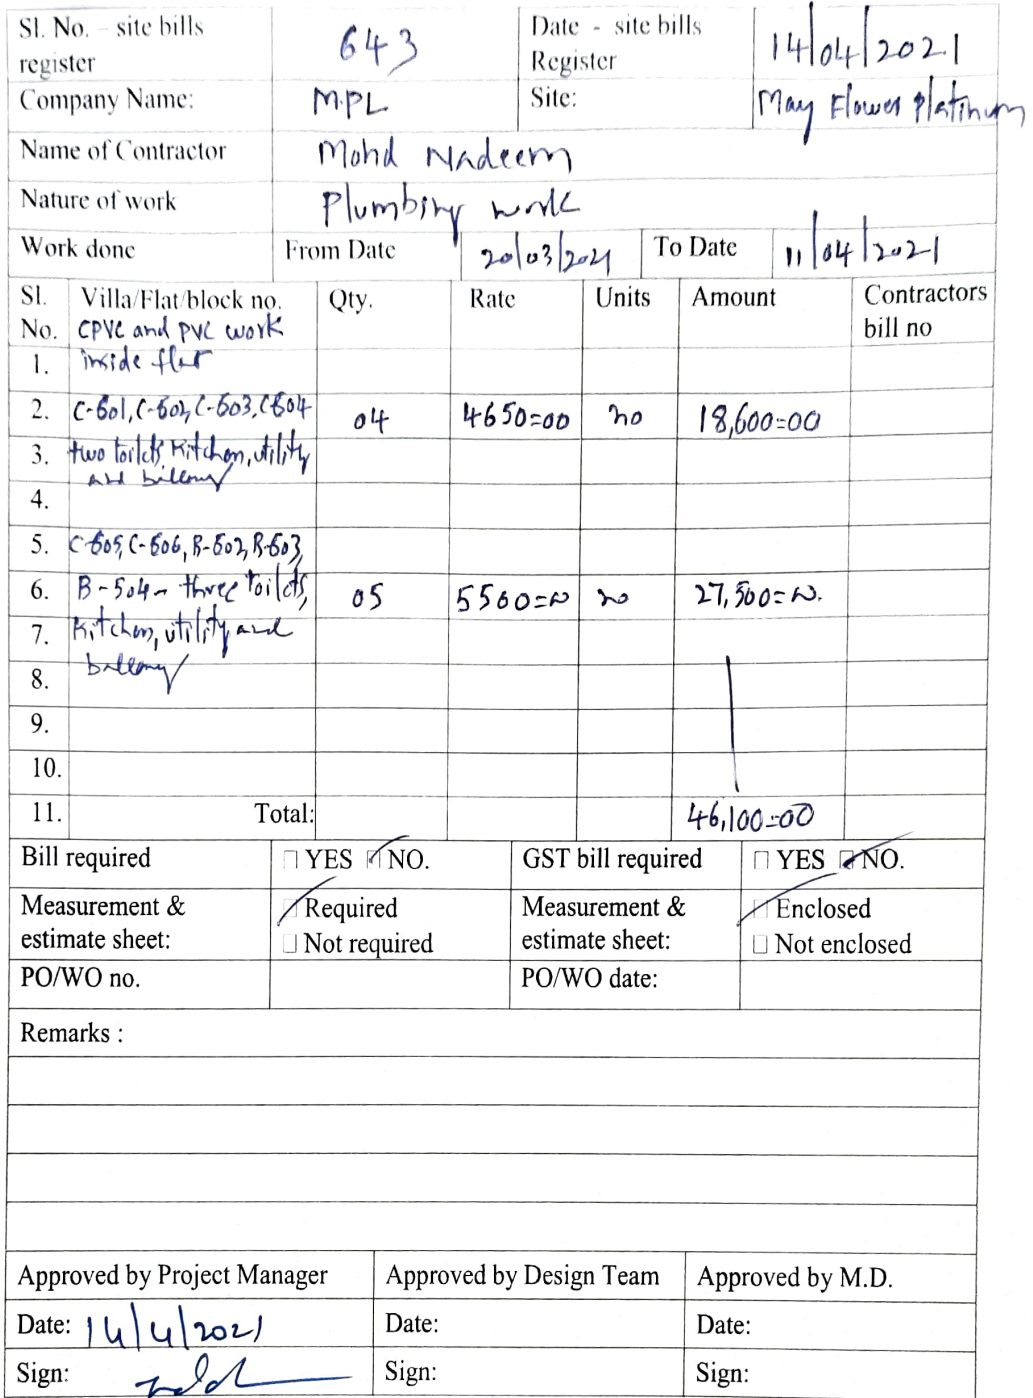 Sl. No. – site bills register 643 Date - site bills Register 14/04/2021
Company Name: MPL Site: May Flower Platinum
Name of Contractor Mohd Nadeem
Nature of work Plumbing work
Work done From Date 20/03/2021 To Date 11/04/2021
Sl. No. Villa/Flat/block no. Qty. Rate Units Amount Contractors bill no
CPVC and PVC work
1. inside flat
2. C-601, C-602, C-603, C-604 04 4650=00 no 18,600=00
3. two toilets, Kitchen, utility
and balcony
4.
5. C-605, C-606, B-502, B-503,
6. B-504 - three toilets, 05 5500=00 no 27,500=00.
7. Kitchen, utility and
balcony
8.
9.
10.
11. Total: 46,100=00
Bill required YES NO. GST bill required YES NO.
Measurement & estimate sheet: Required Measurement & estimate sheet: Enclosed
Not required Not enclosed
PO/WO no. PO/WO date:
Remarks :
Approved by Project Manager Approved by Design Team Approved by M.D.
Date: 14/4/2021 Date: Date:
Sign: Sign: Sign: